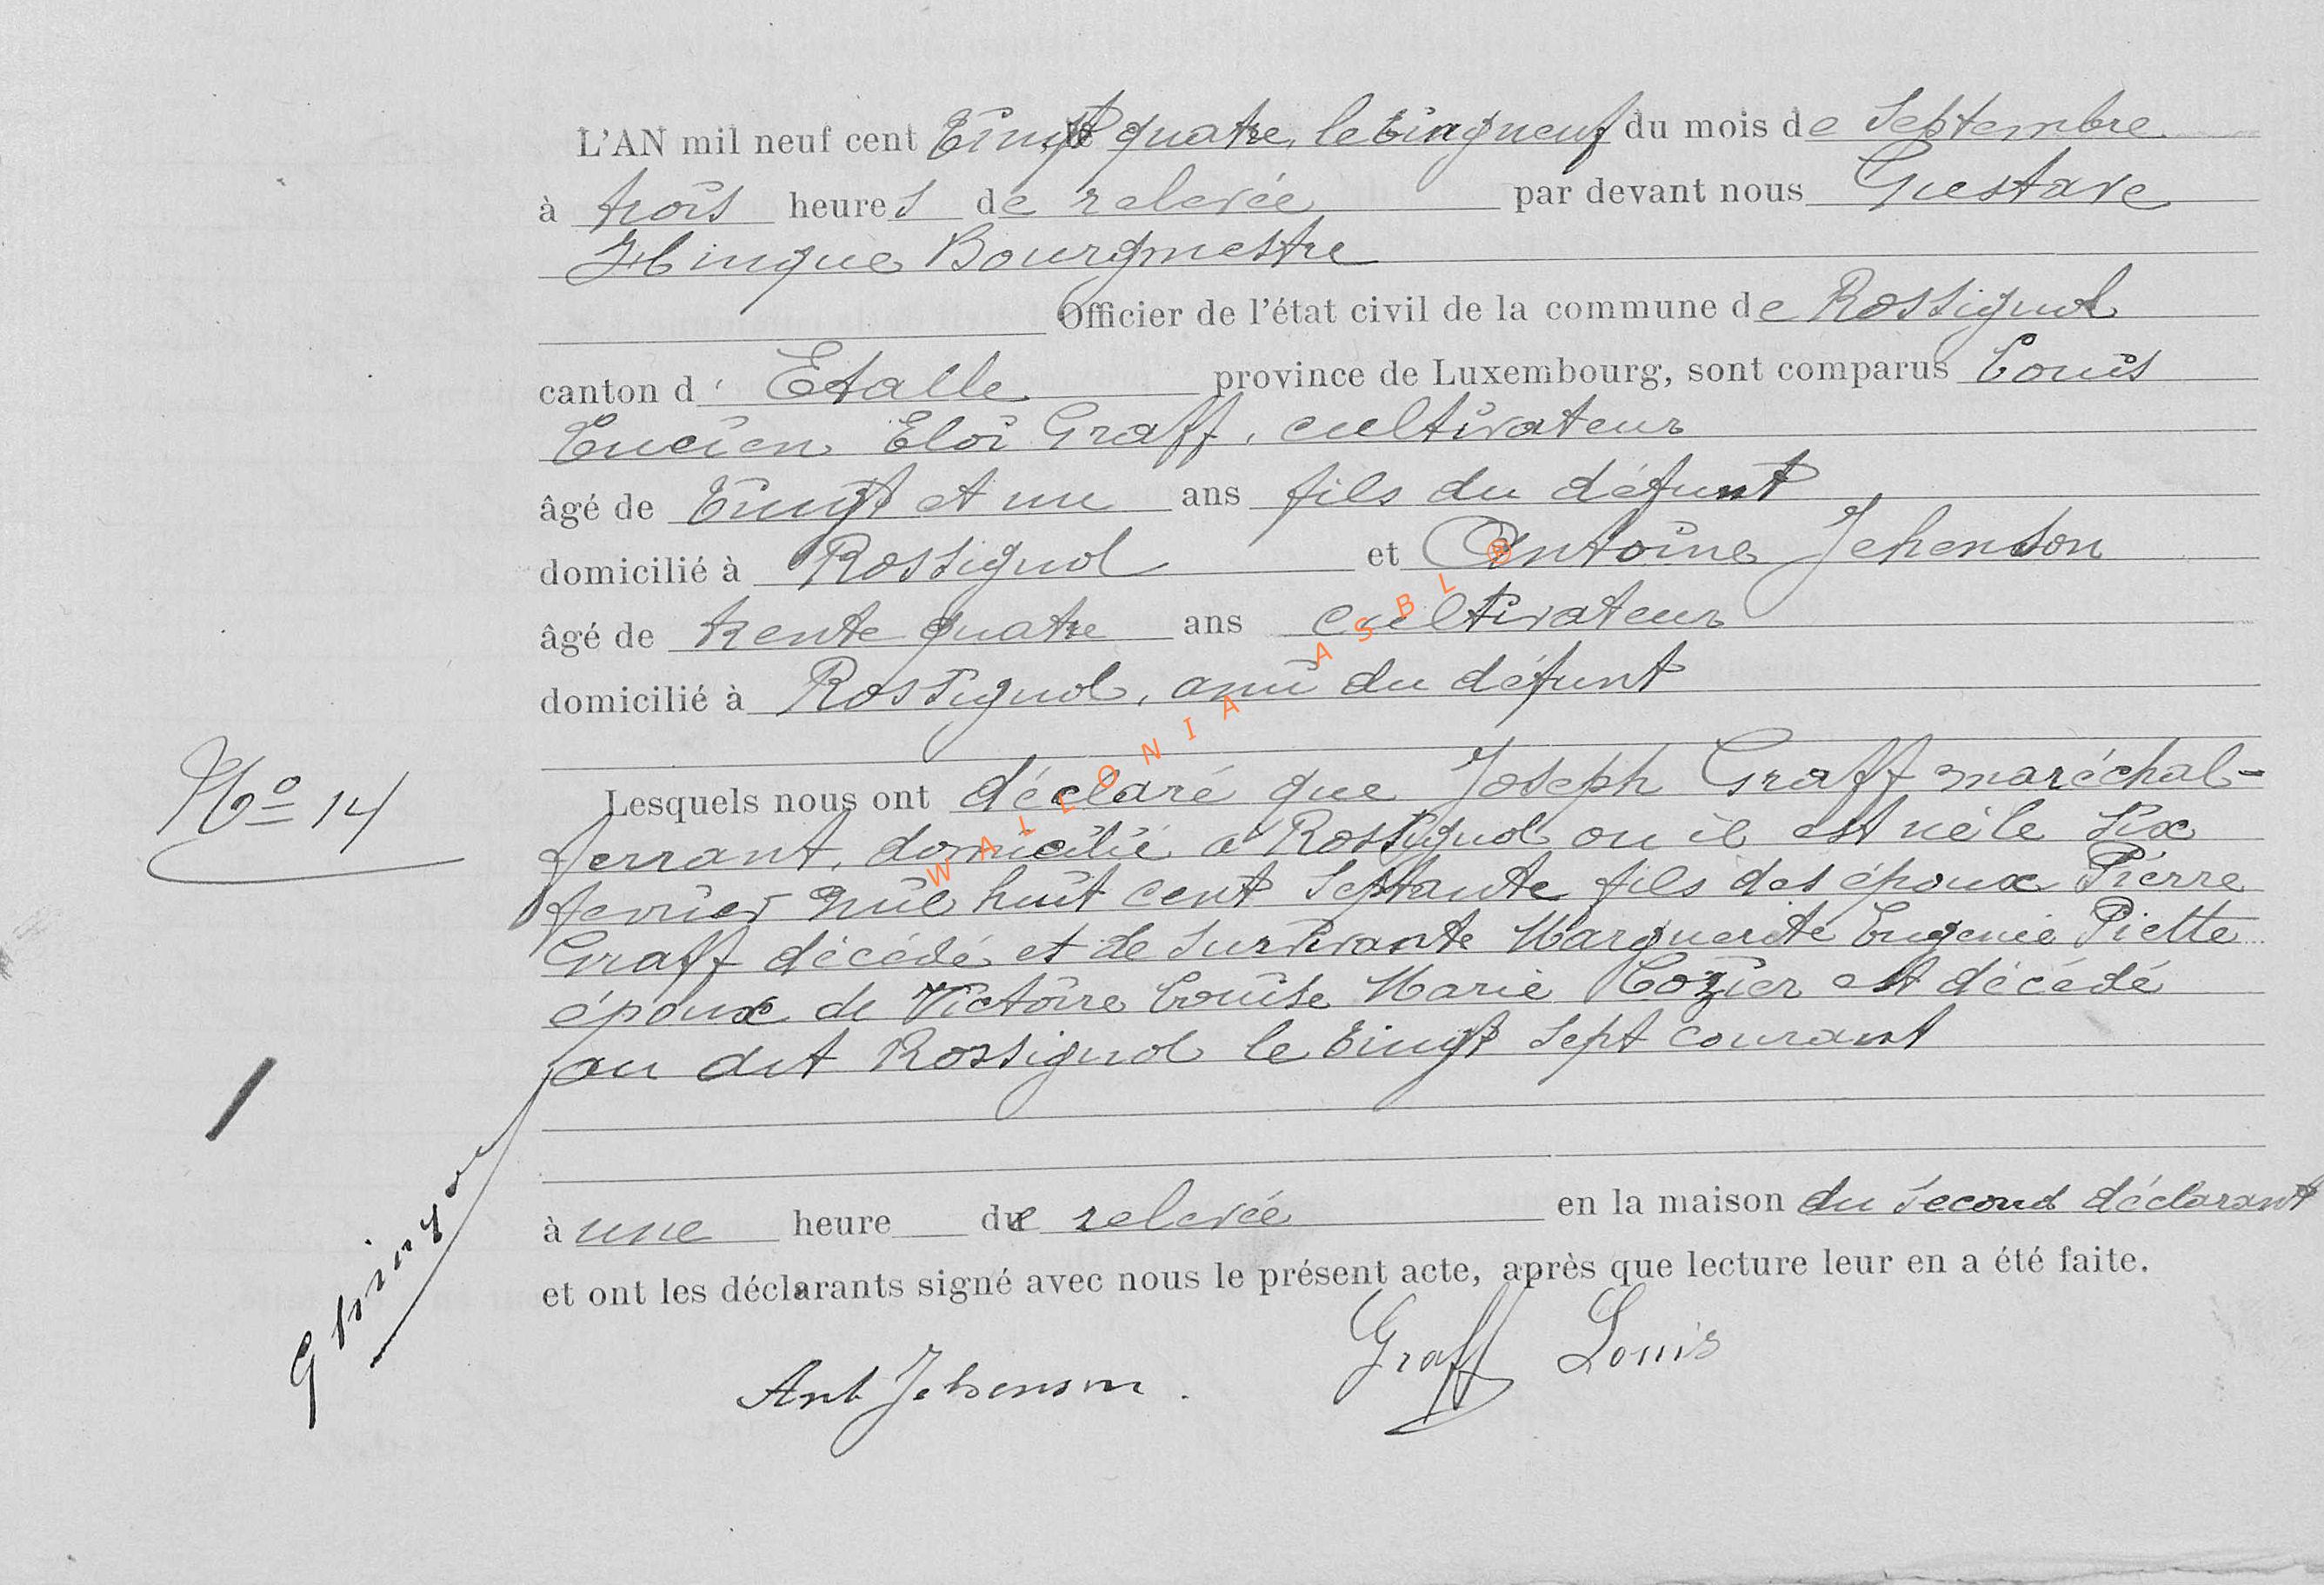 L'AN mil neuf cent Vingt quatre, le vingneuf du mois de Septembre
à trois heures de relevée par devant nous Gustave
Hinque Bourgmestre
Officier de l'état civil de la commune de Rossignol
canton d' Etalle province de Luxembourg, sont comparus Louis
Lucien Eloi Graff, cultivateur
âgé de Vingt et un ans fils du défunt
domicilié à Rossignol et Antoine Jehenson
âgé de trente quatre ans cultivateur
domicilié à Rossignol, ami du défunt
No 14
Lesquels nous ont déclaré que Joseph Graff maréchal-
ferrant, domicilié à Rossignol ou il est né le six
fevrier mil huit cent septante fils des époux Pierre
Graff décédé et de survivante Marguerite Eugenie Piette
époux de Victoire Louise Marie Lozier est décédé
au dit Rossignol le vingt sept courant
à une heure de relevée en la maison du second déclarant
et ont les déclarants signé avec nous le présent acte, après que lecture leur en a été faite.
G Hinque
Ant Jehenson. Graff Louis
WALLONIA ASBL ®